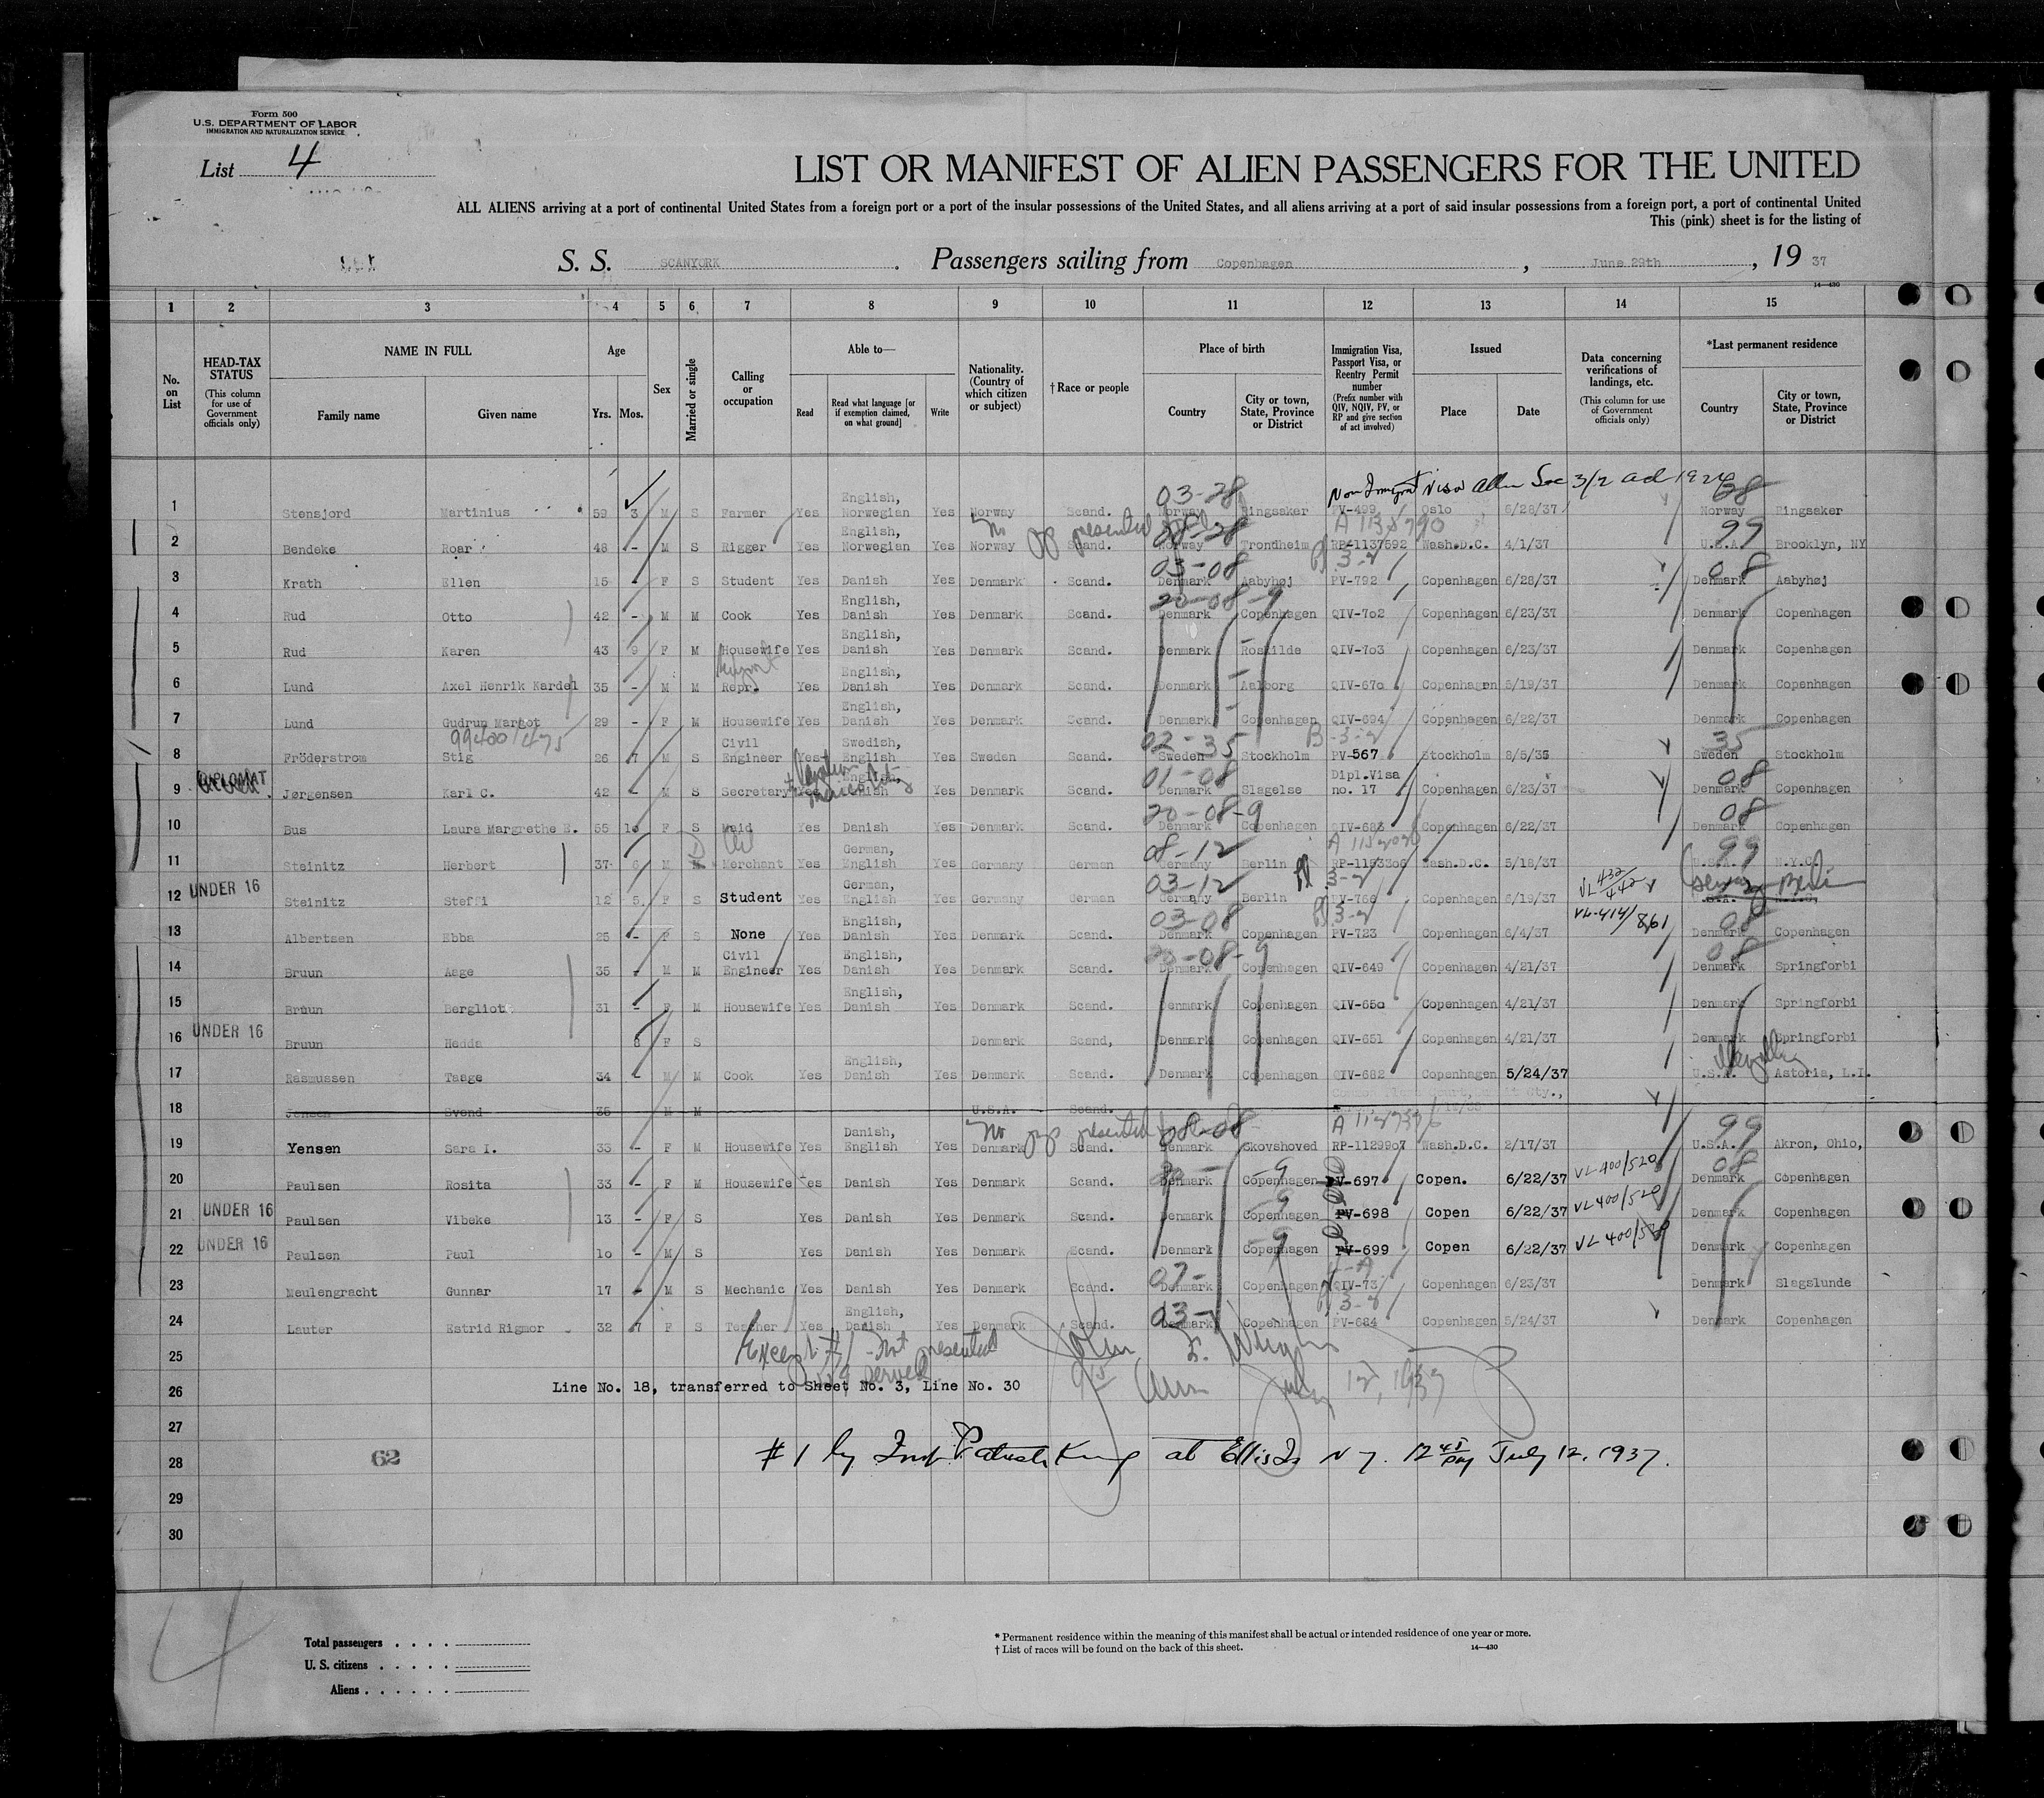 Form 500
U.S. DEPARTMENT OF LABOR
IMMIGRATION AND NATURALIZATION SERVICE
List 4
LIST OR MANIFEST OF ALIEN PASSENGERS FOR THE UNITED
ALL ALIENS arriving at a port of continental United States from a foreign port or a port of the insular possessions of the United States, and all aliens arriving at a port of said insular possessions from a foreign port, a port of continental United
This (pink) sheet is for the listing of
S. S. SCANYORK. Passengers sailing from Copenhagen, June 29th, 19 37
14—430
1 2 3 4 5 6 7 8 9 10 11 12 13 14 15
No. on List
HEAD-TAX STATUS (This column for use of Government officials only)
NAME IN FULL Family name Given name
Age Yrs. Mos.
Sex
Married or single
Calling or occupation
Able to— Read Read what language [or if exemption claimed, on what ground] Write
Nationality. (Country of which citizen or subject)
†Race or people
Place of birth Country City or town, State, Province or District
Immigration Visa, Passport Visa, or Reentry Permit number (Prefix number with QIV, NQIV, PV, or RP and give section of act involved)
Issued Place Date
Data concerning verifications of landings, etc. (This column for use of Government officials only)
*Last permanent residence Country City or town, State, Province or District
03-28 38
1 Stensjord Martinius 59 3 M S Farmer Yes English, Norwegian Yes Norway Scand. Norway Ringsaker PV-499 Oslo 6/28/37 Norway Ringsaker
No pp presented 08-28 A 1135790 99
2 Bendeke Roar 48 - M S Rigger Yes English, Norwegian Yes Norway Scand. Norway Trondheim RP-1137592 Wash.D.C. 4/1/37 U.S.A. Brooklyn, NY
03-08 3-2 08
3 Krath Ellen 15 - F S Student Yes Danish Yes Denmark Scand. Denmark Aabyhøj PV-792 Copenhagen 6/28/37 Denmark Aabyhøj
20-08-9
4 Rud Otto 42 - M M Cook Yes English, Danish Yes Denmark Scand. Denmark Copenhagen QIV-702 Copenhagen 6/23/37 Denmark Copenhagen
5 Rud Karen 43 9 F M Housewife Yes English, Danish Yes Denmark Scand. Denmark Roskilde QIV-703 Copenhagen 6/23/37 Denmark Copenhagen
6 Lund Axel Henrik Kardel 35 - M M Repr. Yes English, Danish Yes Denmark Scand. Denmark Aalborg QIV-670 Copenhagen 5/19/37 Denmark Copenhagen
7 Lund Gudrun Margot 29 - F M Housewife Yes English, Danish Yes Denmark Scand. Denmark Copenhagen QIV-694 Copenhagen 6/22/37 Denmark Copenhagen
99400/475 02-35 B-3-2 35
8 Fröderstrom Stig 26 7 M S Civil Engineer Yes Swedish, English Yes Sweden Scand. Sweden Stockholm PV-567 Stockholm 8/5/35 Sweden Stockholm
DIPLOMAT 01-08 08
9 Jørgensen Karl C. 42 - M S Secretary Yes English, Danish Yes Denmark Scand. Denmark Slagelse Dipl.Visa no. 17 Copenhagen 6/23/37 Denmark Copenhagen
20-08-9 08
10 Bus Laura Margrethe E. 55 10 F S Maid Yes Danish Yes Denmark Scand. Denmark Copenhagen QIV-683 Copenhagen 6/22/37 Denmark Copenhagen
D 08-12 99
11 Steinitz Herbert 37 6 M Merchant Yes German, English Yes Germany German Germany Berlin RP-1153306 Wash.D.C. 5/18/37 U.S.A. N.Y.C.
UNDER 16 03-12 3-2 VL 432/442 Berlin
12 Steinitz Steffi 12 5 F S Student Yes German, English Yes Germany German Germany Berlin PV-766 Copenhagen 6/19/37
03-08 3-2 VL-414/861 08
13 Albertsen Ebba 25 - F S None Yes English, Danish Yes Denmark Scand. Denmark Copenhagen PV-723 Copenhagen 6/4/37 Denmark Copenhagen
20-08-9 08
14 Bruun Aage 35 - M M Civil Engineer Yes English, Danish Yes Denmark Scand. Denmark Copenhagen QIV-649 Copenhagen 4/21/37 Denmark Springforbi
15 Bruun Bergliot 31 - F M Housewife Yes English, Danish Yes Denmark Scand. Denmark Copenhagen QIV-650 Copenhagen 4/21/37 Denmark Springforbi
UNDER 16
16 Bruun Hedda 8 F S Denmark Scand, Denmark Copenhagen QIV-651 Copenhagen 4/21/37 Denmark Springforbi
17 Rasmussen Taage 34 - M M Cook Yes English, Danish Yes Denmark Scand. Denmark Copenhagen QIV-682 Copenhagen 5/24/37 U.S.A. Astoria, L.I.
18 Jensen Svend 36 M M U.S.A. Scand.
No pp presented 08-08 99
19 Yensen Sara I. 33 - F M Housewife Yes Danish, English Yes Denmark Scand. Denmark Skovshoved RP-1129907 Wash.D.C. 2/17/37 U.S.A. Akron, Ohio,
VL 400/520 08
20 Paulsen Rosita 33 - F M Housewife Yes Danish Yes Denmark Scand. Denmark Copenhagen PV-697 Copen. 6/22/37 Denmark Copenhagen
UNDER 16 VL 400/520
21 Paulsen Vibeke 13 - F S Yes Danish Yes Denmark Scand. Denmark Copenhagen PV-698 Copen 6/22/37 Denmark Copenhagen
UNDER 16 VL 400/520
22 Paulsen Paul 10 - M S Yes Danish Yes Denmark Scand. Denmark Copenhagen PV-699 Copen 6/22/37 Denmark Copenhagen
07-
23 Meulengracht Gunnar 17 - M S Mechanic Yes Danish Yes Denmark Scand. Denmark Copenhagen QIV-73 Copenhagen 6/23/37 Denmark Slagslunde
03- 3-2
24 Lauter Estrid Rigmor 32 7 F S Teacher Yes English, Danish Yes Denmark Scand. Denmark Copenhagen PV-684 Copenhagen 5/24/37 Denmark Copenhagen
25 Except #1 - Not presented John
26 Line No. 18, transferred to Sheet No. 3, Line No. 30 July 12, 1937
27
28 62 #1 by Insp Patrick King at Ellis Is N Y. 12 45 PM July 12, 1937.
29
30
4
Total passengers
U. S. citizens
Aliens
* Permanent residence within the meaning of this manifest shall be actual or intended residence of one year or more.
† List of races will be found on the back of this sheet.
14—430